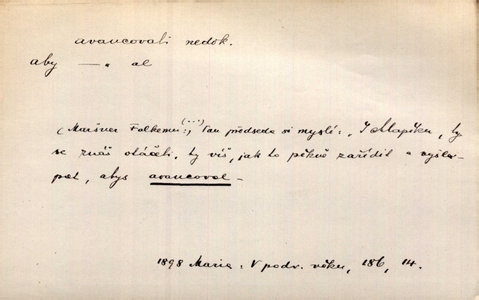 avancovati nedok.
aby —„— al
(Maršner Folkemu: (...) Pan předseda si myslí: „I chlapíku, ty
se znáš otáčeti, ty víš, jak to pěkně zaříditi a vyšla-
pat, abys avancoval –
1898 Maria: V podv. věku, 186, 14.